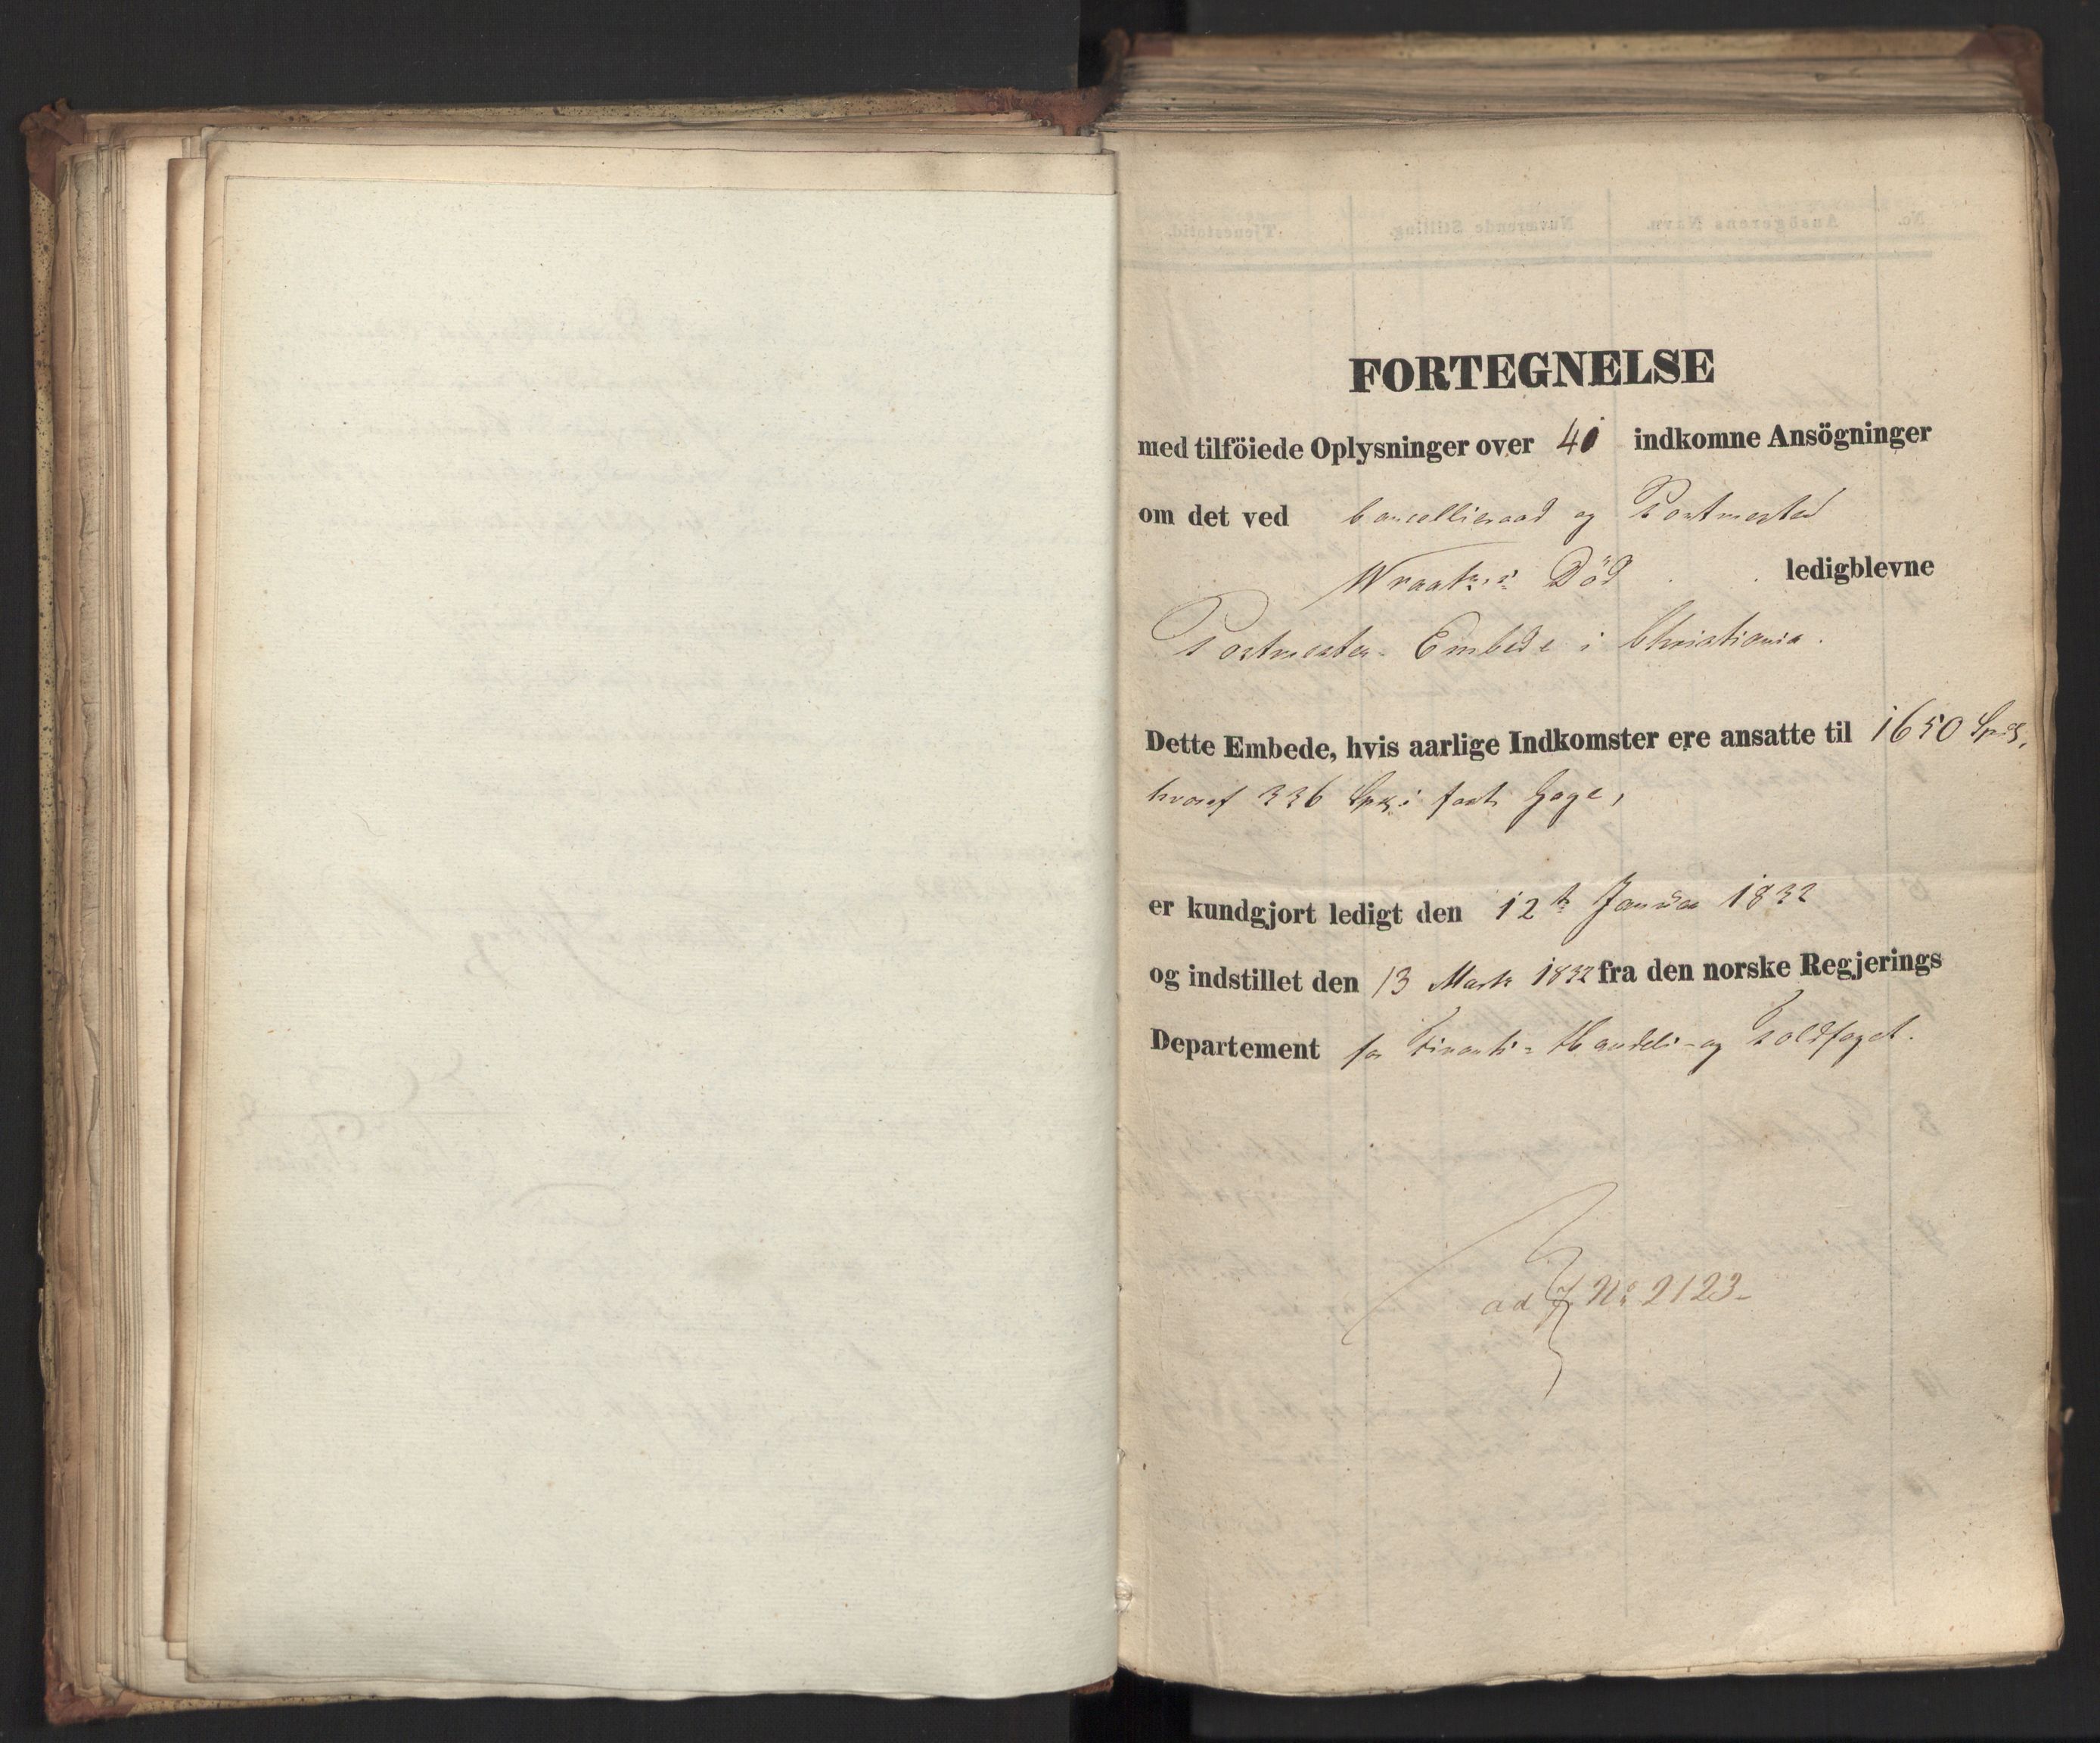 FORTEGNELSE
med tilföiede Oplysninger over 41 indkomne Ansögninger
om det ved Cancellieraad og Postmester
Wraatz's Död ledigblevne
Postmester-Embede i Christiania.
Dette Embede, hvis aarlige Indkomster ere ansatte til 1650 Spd,
hvoraf 336 Spd i fast Gage,
er kundgjort ledigt den 12te Januar 1832
og indstillet den 13 Marts 1832 fra den norske Regjerings
Departement for Finants- Handels- og Toldfaget.
ad J No 2123-
No. Ansögerens Navn. Nuværende Stilling. Tjenestetid.